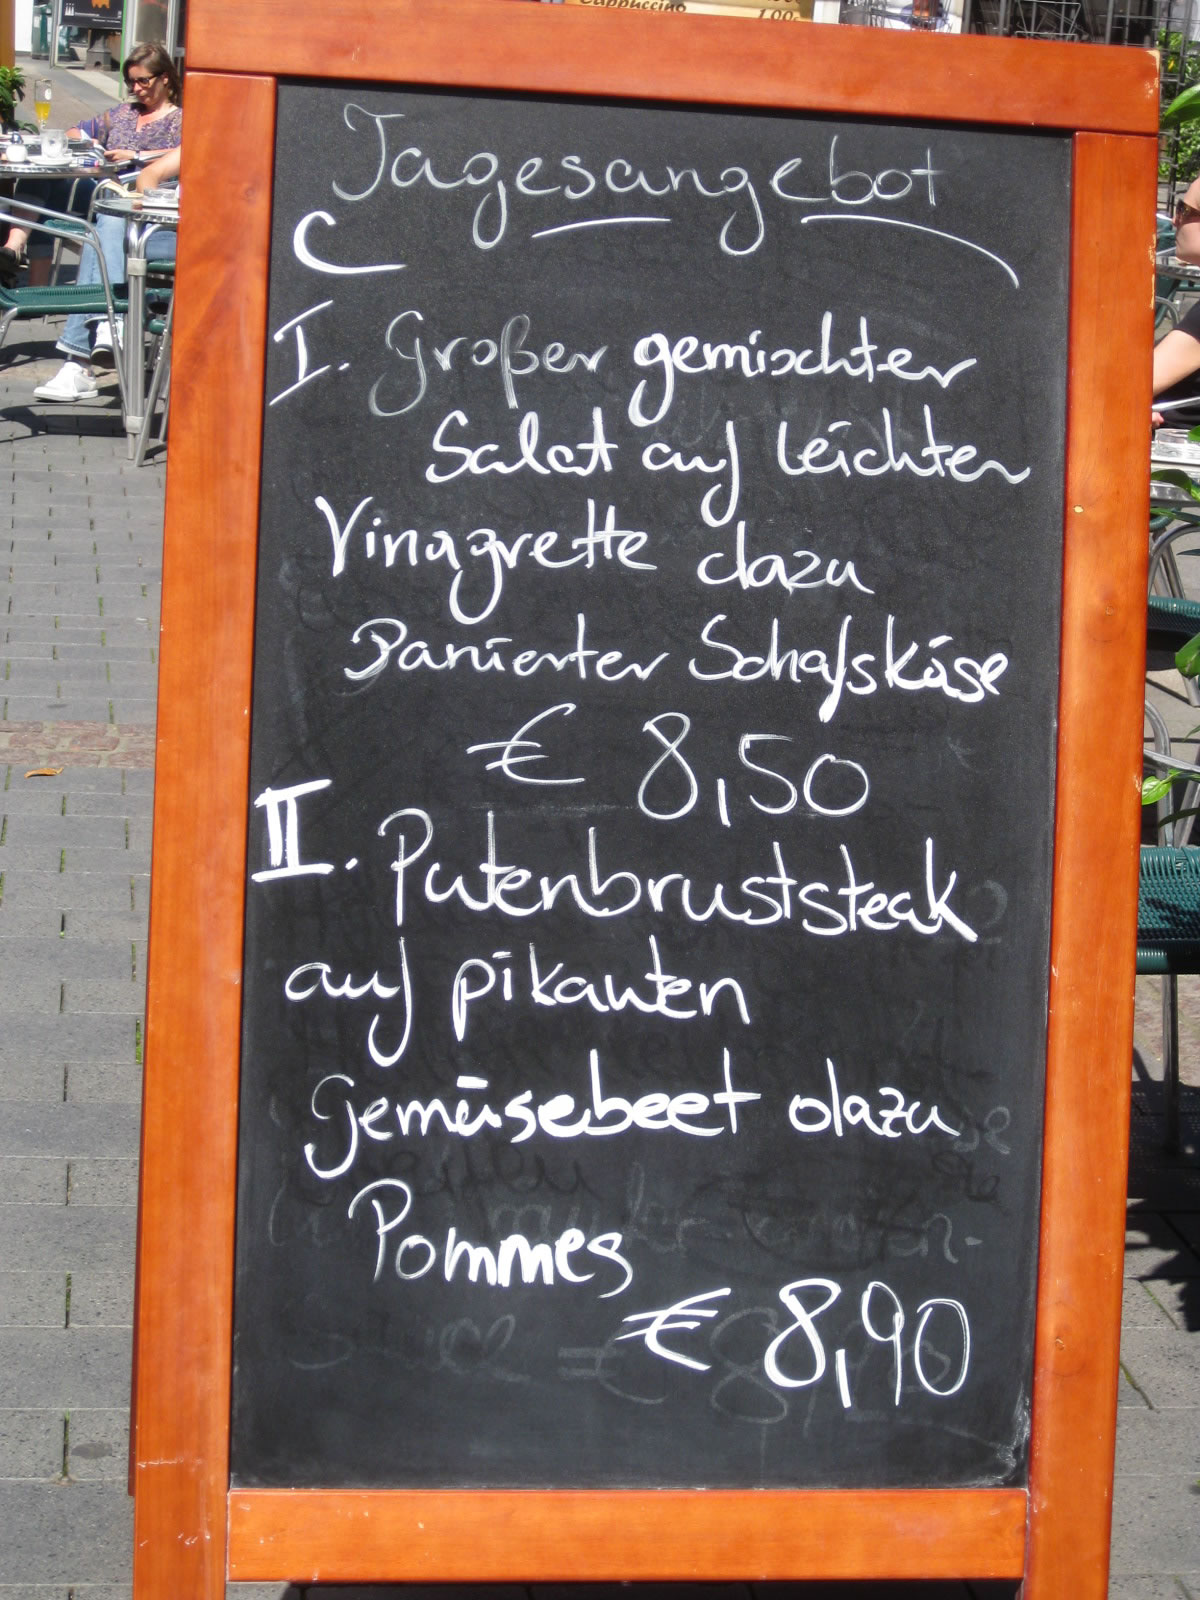 Cappuccino
Tagesangebot
I. Großer gemischter
Salat auf leichter
Vinagrette dazu
Panierter Schafskäse
€ 8,50
II. Putenbruststeak
auf pikanten
Gemüsebeet dazu
Pommes
€ 8,90